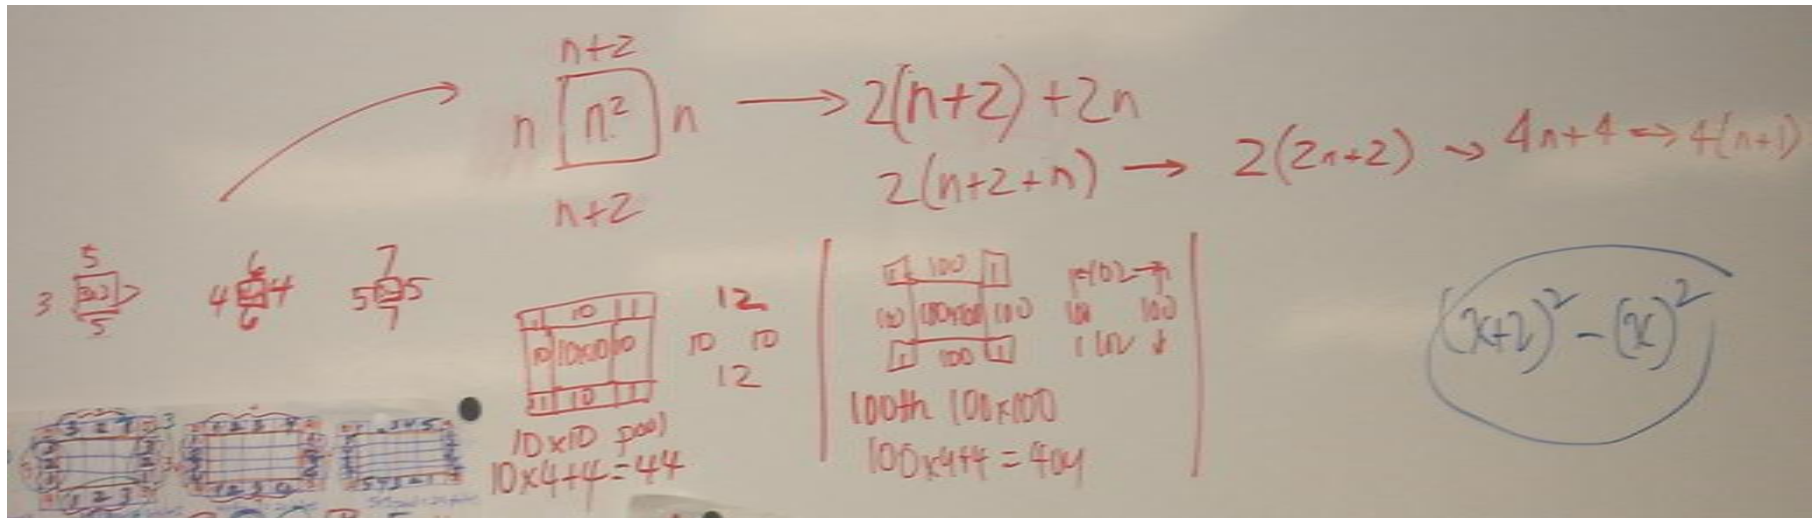 n+2
n n² n → 2(n+2) + 2n
n+2
2(n+2+n) → 2(2n+2) → 4n+4 → 4(n+1)
5
3
5
6
4 4
6
7
5 5
7
1 10 1
10 10x10 10
1 10 1
12
10 10
12
10x10 pool
10x4+4=44
1 100 1
100 100x100 100
1 100 1
102
100 100
102
100th 100x100
100x4+4=404
(x+2)² - (x)²